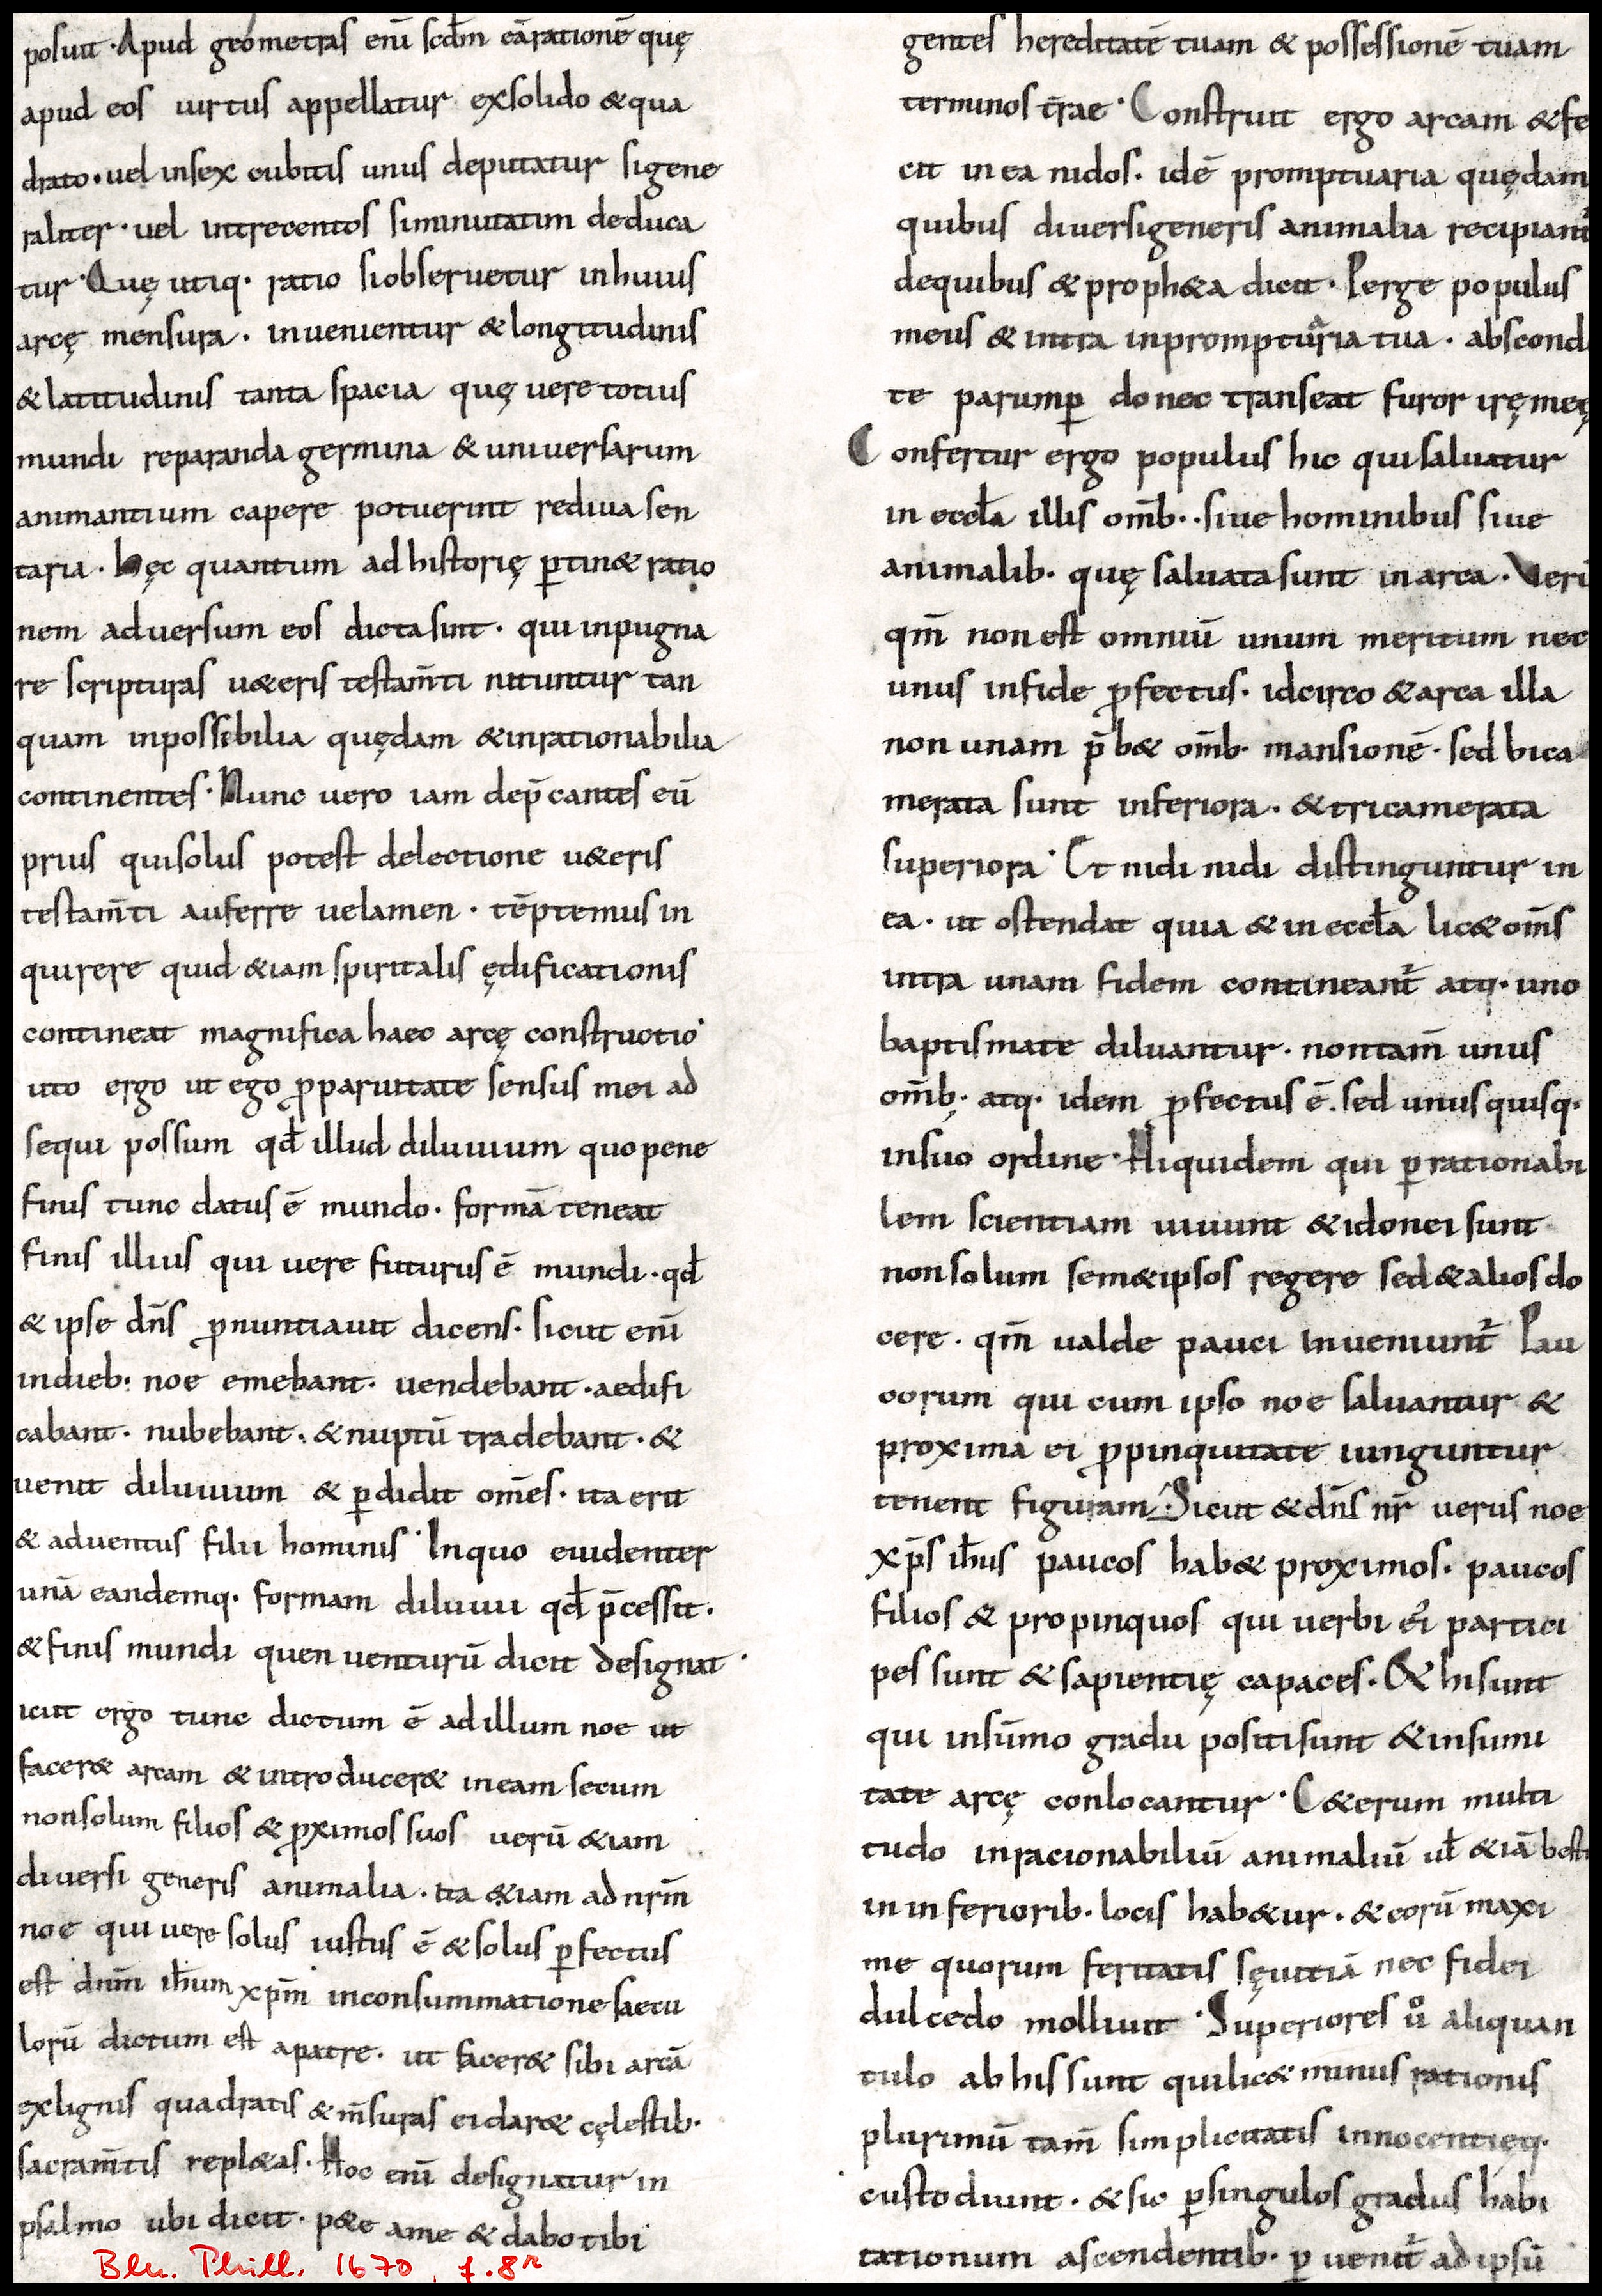 posuit · Apud geómetras enī scd̄m eārationē quę
apud eos uirtus appellatur exsolido &qua
drato · uel insex cubitis unus deputatur sigene
raliter · uel intrecentos siminutatim deduca
tur · Quę utiq · ratio siobseruetur inhuius
arcę mensura · inuenientur & longitudinis
& latitudinis tanta spacia quę uere totius
mundi reparanda germina & uniuersarum
animantium capere potuerint rediua sen
taria · hęc quantum ad historię ꝑtin& ratio
nem aduersum eos dictasint · qui inpugna
re scripturas u&eris testam̄ti nituntur tan
quam inpossibilia quędam &inrationabilia
continentes · Nunc uero iam dep̄cantes eū
prius quisolus potest delectione u&eris
testam̄ti auferre uelamen · tēptemus in
quirere quid &iam spiritalis ędificationis
contineat magnifica haec arcę constructio ·
uto ergo ut ego ꝓparuitate sensus mei ad
sequi possum qd̄ illud diluuium quopene
finis tunc datus ē mundo · formā teneat
finis illius qui uere futurus ē mundi · qd̄
& ipse dn̄s ꝓnuntiauit dicens · sicut enī
indieb: noe emebant · uendebant · aedifi
cabant · nubebant · &nuptū tradebant · &
uenit diluuium & ꝑdidit om̄es · ita erit
& aduentus filii hominis · Inquo euidenter
unā eandemq · formam diluuii qd̄ p̄cessit ·
& finis mundi quen uenturū dicit designat ·
icut ergo tunc dictum ē adillum noe ut
facer& arcam & introducer& ineam secum
nonsolum filios & ꝓximos suos uerū &iam
diuersi generis animalia · ita &iam ad nr̄m
noe qui uere solus iustus ē & solus ꝑfectus
est dnm̄ ih̄um xp̄m inconsummatione saecu
lorū dictum est apatre · ut facer& sibi arcā
exlignis quadratis & m̄suras eidar& cęlestib ·
sacram̄tis repl&as · Hoc enī designatur in
psalmo ubi dicit · p&e ame & dabo tibi
Bln. Phill. 1670, f. 8ʳ
gentes hereditatē tuam & possessionē tuam
terminos t̄rae · Construit ergo arcam &fe
cit in ea nidos · idē promptuaria quędam
quibus diuersigeneris animalia recipiant̄
dequibus & proph&a dicit · Perge populus
meus & intra inprompturia tua · abscond
te parumꝑ donec transeat furor irę meę
Confertur ergo populus hic qui saluatur
in eccl̄a illis om̄b · · siue hominibus siue
animalib · quę saluata sunt in arca · Uerū
qm̄ non est omniū unum meritum nec
unus infide ꝓfectus · idcirco & arca illa
non unam p̄b& om̄b · mansionē · sed bica
merata sunt inferiora · & tricamerata
superiora · Et nidi nidi distinguntur in
ea · ut ostendat quia & in eccl̄a lic& om̄s
intra unam fidem contineant̄ atq · uno
baptismate diluantur · non tam̄ unus
om̄b · atq · idem ꝓfectus ē · sed unus quisq ·
insuo ordine · Hiquidem qui ꝑrationabi
lem scientiam uiuunt & idonei sunt
nonsolum sem&ipsos regere sed & alios do
cere · qm̄ ualde pauci inueniunt̄ Pau
corum qui cum ipso noe saluantur &
proxima ei ꝓpinquitate iunguntur
tenent figuram · Sicut & dn̄s nr̄ uerus noe
xp̄s ih̄us paucos hab& proximos · paucos
filios & propinquos qui uerbi ei partici
pes sunt & sapientię capaces · & hi sunt
qui insūmo gradu positi sunt & insumi
tate arcę conlocantur · C&erum multi
tudo inracionabiliū animaliū ul̄ &iā besti
in inferiorib · locis hab&ur · & eorū maxi
me quorum feritatis sęuitiā nec fidei
dulcedo molliuit · Superiores u° aliquan
tulo ab his sunt quilic& minus rationis
plurimū tam̄ simplicitatis innocentięq ·
custodiunt · & sic ꝑsingulos gradus habi
tationum ascendentib · ꝑ uenit̄ ad ipsū